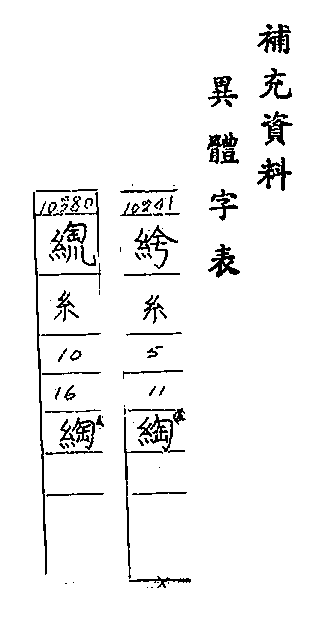 補充資料
異體字表
10241
糸
5
11
綯
10380
糸
10
16
綯